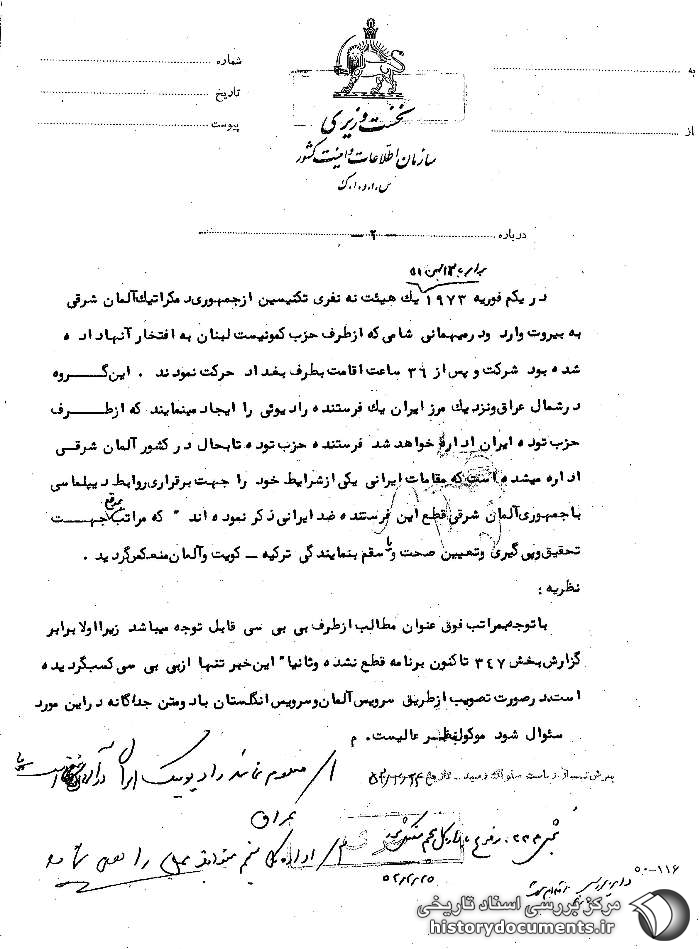 به
از
شماره
تاریخ
پیوست
نخست وزیری
سازمان اطلاعات و امنیت کشور
س.ا.و.ا.ک
درباره
ـ ۲ ـ
برابر با ۱۲ بهمن ۵۱
در یکم فوریه ۱۹۷۳ یك هیئت نه نفری تکنیسین از جمهوری دمکراتیك آلمان شرقی
به بیروت وارد ودر میهمانی شامی که از طرف حزب کمونیست لبنان به افتخار آنها داده
شده بود شرکت و پس از ۳۶ ساعت اقامت بطرف بغداد حرکت نمودند . این گروه
در شمال عراق ونزدیك مرز ایران یك فرستنده رادیوئی را ایجاد مینمایند که از طرف
حزب توده ایران اداره خواهد شد فرستنده حزب توده تابحال در کشور آلمان شرقی
اداره میشده است که مقامات ایرانی یکی از شرایط خود را جهت برقراری روابط دیپلماسی
با جمهوری آلمان شرقی قطع این فرستنده ضد ایرانی ذکر نموده اند " که مراتب بموقع جهت
تحقیق وپی گیری وتعیین صحت و یا سقم بنمایندگی ترکیه ــ کویت وآلمان منعکس گردید .
نظریه :
با توجه بمراتب فوق عنوان مطالب از طرف بی بی سی قابل توجه میباشد زیرا اولا برابر
گزارش بخش ۳۴۷ تاکنون برنامه قطع نشده وثانیا" این خبر تنها از بی بی سی کسب گردیده
است در صورت تصویب از طریق سرویس آلمان و سرویس انگلستان با دو متن جداگانه در این مورد
سئوال شود موکول بنظر عالیست . م
۱/ معلوم نماند رادیو پیک ایران در آلمان
عراق
۲/ اداره کل پنجم
۵۲/۲/۲۵
۵۰-۱۱۶
مرکز بررسی اسناد تاریخی
historydocuments.ir